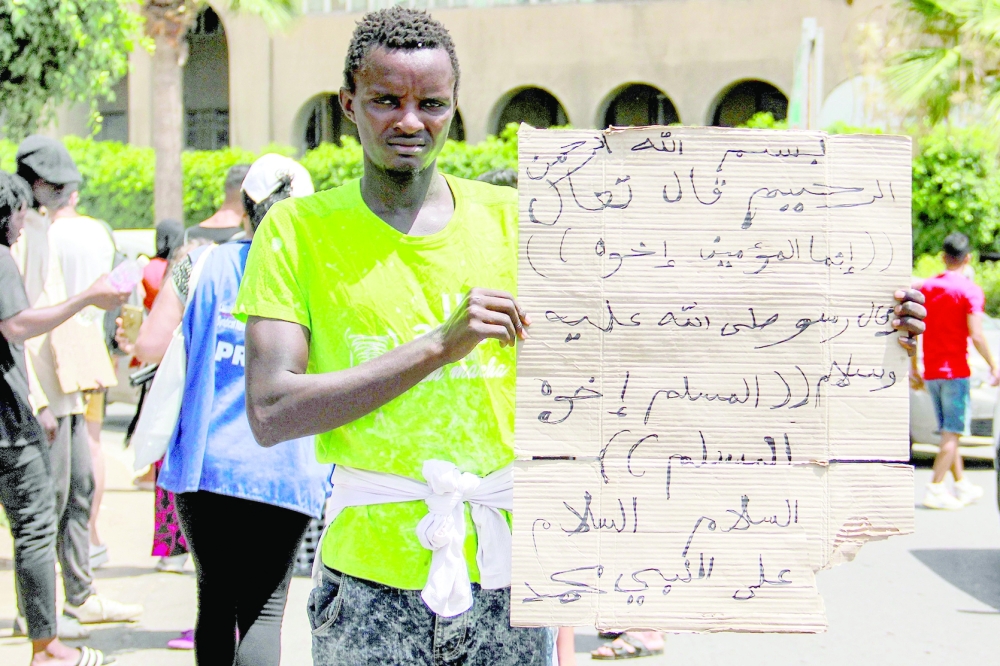 بسم الله الرحمن
الرحيم قال تعالى
((إنما المؤمنين إخوه))
وقال رسو صلى الله عليه
وسلام ((المسلم إخوه
المسلم))
السلام السلام
على النبي محمد
PR